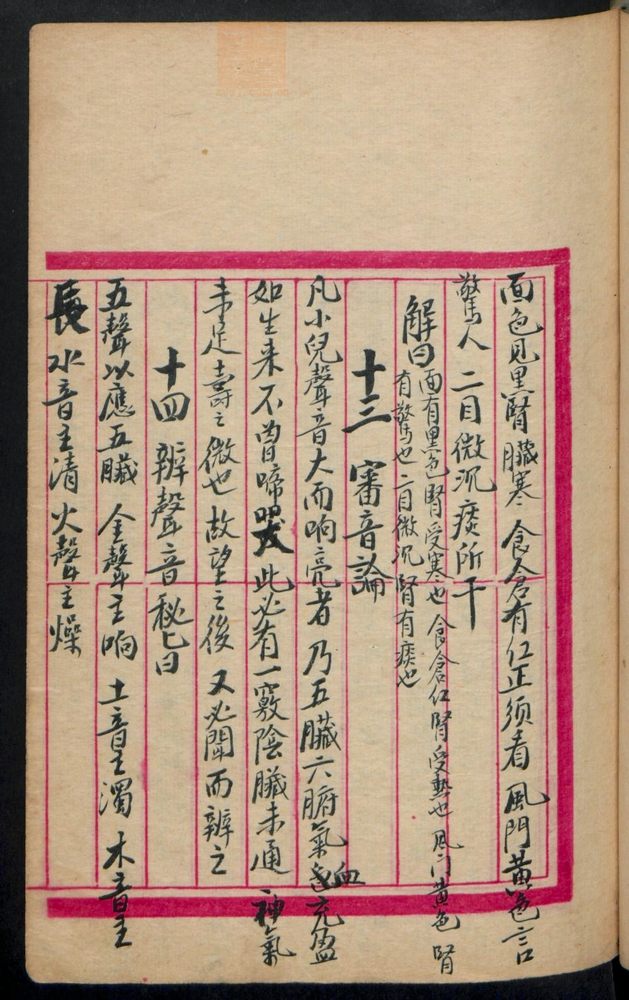 面色見黑腎臟寒 食倉有紅正須看 風門黃色言
驚人 二目微沉痰所干
解曰 面有黑色腎受寒也 食倉紅腎受熱也 風門黃色 腎
有驚也 二目微沉腎有痰也
十三 審音論
凡小兒聲音大而响亮者 乃五臟六腑氣血充盈
如生来不曾啼哭 此必有一竅陰臟未通 神氣
未足 壽之微也 故望之後 又必聞而辨之
十四 辨聲音秘曰
五聲以應五臟 金聲主响 土音主濁 木音主
長 水音主清 火聲主燥